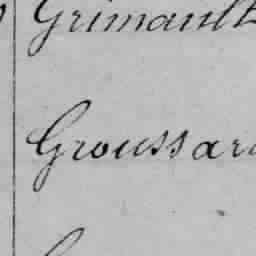 Grimault
Groussar